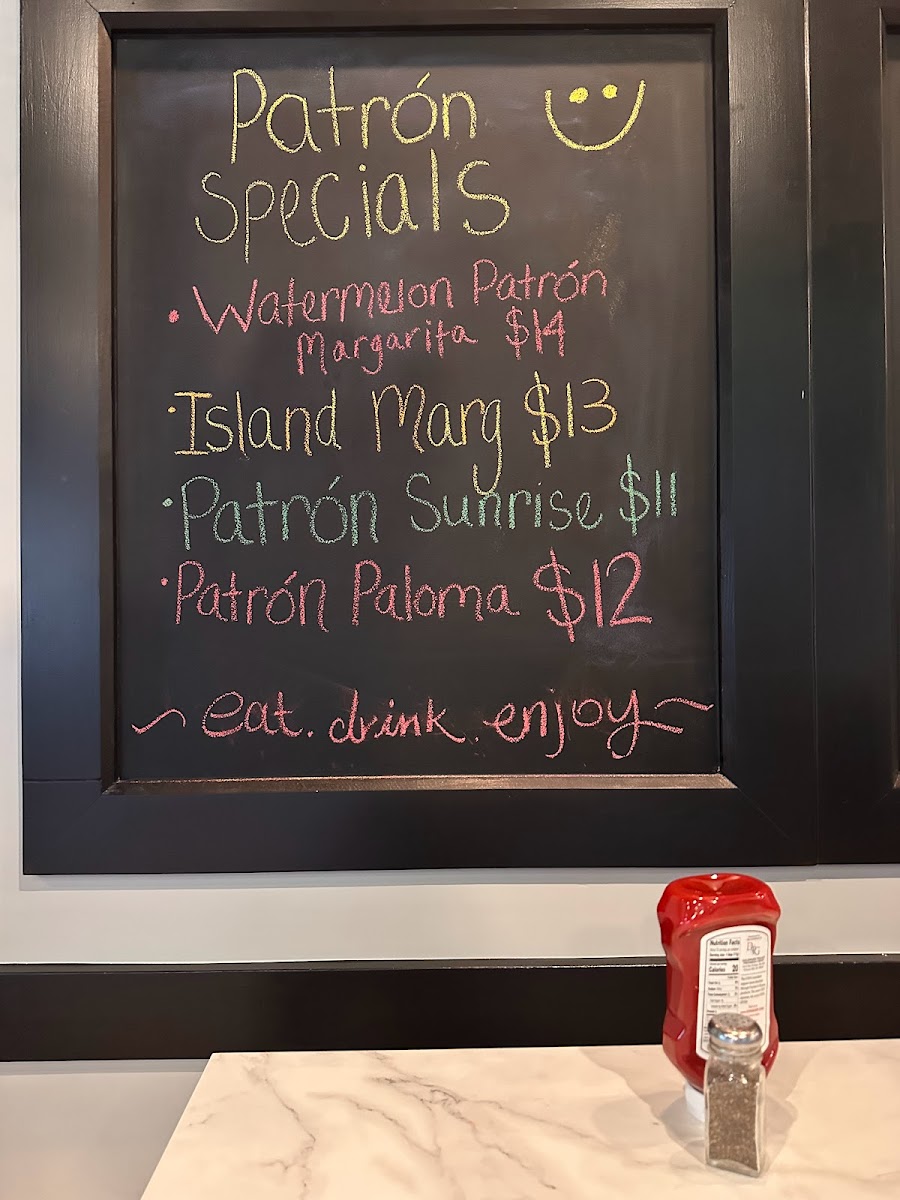 Patrón
Specials
• Watermelon Patrón
Margarita $14
• Island Marg $13
• Patrón Sunrise $11
• Patrón Paloma $12
~ eat. drink. enjoy ~
Nutrition Facts
Calories 20